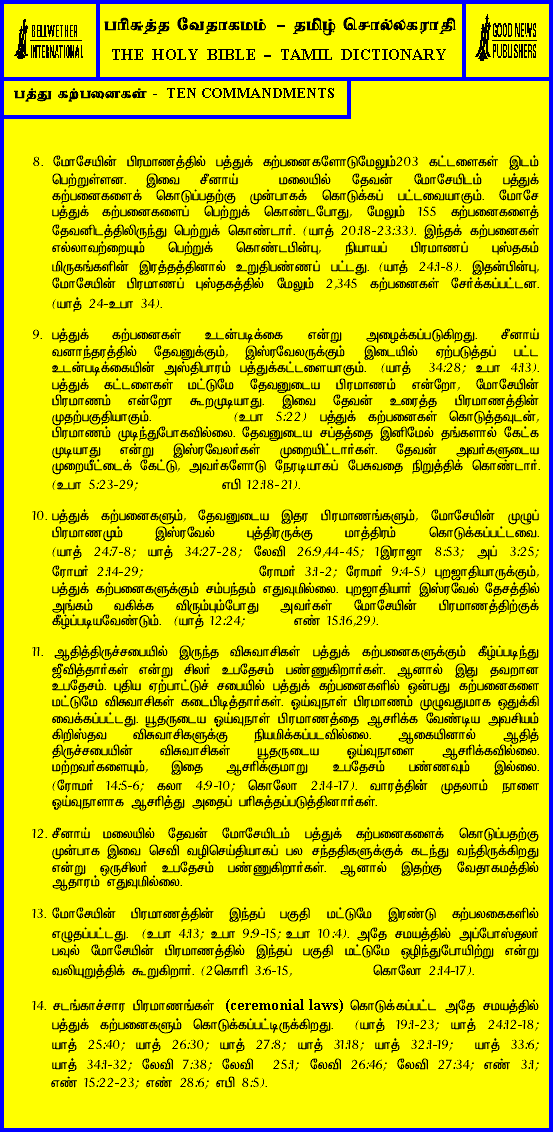 BELLWETHER
INTERNATIONAL
பரிசுத்த வேதாகமம் – தமிழ் சொல்லகராதி
THE HOLY BIBLE – TAMIL DICTIONARY
GOOD NEWS
PUBLISHERS
பத்து கற்பனைகள் - TEN COMMANDMENTS
8. மோசேயின் பிரமாணத்தில் பத்துக் கற்பனைகளோடுமேலும்203 கட்டளைகள் இடம்
பெற்றுள்ளன. இவை சீனாய் மலையில் தேவன் மோசேயிடம் பத்துக்
கற்பனைகளைக் கொடுப்பதற்கு முன்பாகக் கொடுக்கப் பட்டவையாகும். மோசே
பத்துக் கற்பனைகளைப் பெற்றுக் கொண்டபோது, மேலும் 155 கற்பனைகளைத்
தேவனிடத்திலிருந்து பெற்றுக் கொண்டார். (யாத் 20:18-23:33). இந்தக் கற்பனைகள்
எல்லாவற்றையும் பெற்றுக் கொண்டபின்பு, நியாயப் பிரமாணப் புஸ்தகம்
மிருகங்களின் இரத்தத்தினால் உறுதிபண்ணப் பட்டது. (யாத் 24:1-8). இதன்பின்பு,
மோசேயின் பிரமாணப் புஸ்தகத்தில் மேலும் 2,345 கற்பனைகள் சேர்க்கப்பட்டன.
(யாத் 24-உபா 34).
9. பத்துக் கற்பனைகள் உடன்படிக்கை என்று அழைக்கப்படுகிறது. சீனாய்
வனாந்தரத்தில் தேவனுக்கும், இஸ்ரவேலருக்கும் இடையில் ஏற்படுத்தப் பட்ட
உடன்படிக்கையின் அஸ்திபாரம் பத்துக்கட்டளையாகும். (யாத் 34:28; உபா 4:13).
பத்துக் கட்டளைகள் மட்டுமே தேவனுடைய பிரமாணம் என்றோ, மோசேயின்
பிரமாணம் என்றோ கூறமுடியாது. இவை தேவன் உரைத்த பிரமாணத்தின்
முதற்பகுதியாகும். (உபா 5:22) பத்துக் கற்பனைகள் கொடுத்தவுடன்,
பிரமாணம் முடிந்துபோகவில்லை. தேவனுடைய சப்தத்தை இனிமேல் தங்களால் கேட்க
முடியாது என்று இஸ்ரவேலர்கள் முறையிட்டார்கள். தேவன் அவர்களுடைய
முறையீட்டைக் கேட்டு, அவர்களோடு நேரடியாகப் பேசுவதை நிறுத்திக் கொண்டார்.
(உபா 5:23-29; எபி 12:18-21).
10. பத்துக் கற்பனைகளும், தேவனுடைய இதர பிரமாணங்களும், மோசேயின் முழுப்
பிரமாணமும் இஸ்ரவேல் புத்திரருக்கு மாத்திரம் கொடுக்கப்பட்டவை.
(யாத் 24:7-8; யாத் 34:27-28; லேவி 26:9,44-45; 1இராஜா 8:53; அப் 3:25;
ரோமர் 2:14-29; ரோமர் 3:1-2; ரோமர் 9:4-5) புறஜாதியாருக்கும்,
பத்துக் கற்பனைகளுக்கும் சம்பந்தம் எதுவுமில்லை. புறஜாதியார் இஸ்ரவேல் தேசத்தில்
அங்கம் வகிக்க விரும்பும்போது அவர்கள் மோசேயின் பிரமாணத்திற்குக்
கீழ்ப்படியவேண்டும். (யாத் 12:24; எண் 15:16,29).
11. ஆதித்திருச்சபையில் இருந்த விசுவாசிகள் பத்துக் கற்பனைகளுக்கும் கீழ்ப்படிந்து
ஜீவித்தார்கள் என்று சிலர் உபதேசம் பண்ணுகிறார்கள். ஆனால் இது தவறான
உபதேசம். புதிய ஏற்பாட்டுச் சபையில் பத்துக் கற்பனைகளில் ஒன்பது கற்பனைகளை
மட்டுமே விசுவாசிகள் கடைபிடித்தார்கள். ஓய்வுநாள் பிரமாணம் முழுவதுமாக ஒதுக்கி
வைக்கப்பட்டது. யூதருடைய ஓய்வுநாள் பிரமாணத்தை ஆசரிக்க வேண்டிய அவசியம்
கிறிஸ்தவ விசுவாசிகளுக்கு நியமிக்கப்படவில்லை. ஆகையினால் ஆதித்
திருச்சபையின் விசுவாசிகள் யூதருடைய ஓய்வுநாளை ஆசரிக்கவில்லை.
மற்றவர்களையும், இதை ஆசரிக்குமாறு உபதேசம் பண்ணவும் இல்லை.
(ரோமர் 14:5-6; கலா 4:9-10; கொலோ 2:14-17). வாரத்தின் முதலாம் நாளை
ஓய்வுநாளாக ஆசரித்து அதைப் பரிசுத்தப்படுத்தினார்கள்.
12. சீனாய் மலையில் தேவன் மோசேயிடம் பத்துக் கற்பனைகளைக் கொடுப்பதற்கு
முன்பாக இவை செவி வழிசெய்தியாகப் பல சந்ததிகளுக்குக் கடந்து வந்திருக்கிறது
என்று ஒருசிலர் உபதேசம் பண்ணுகிறார்கள். ஆனால் இதற்கு வேதாகமத்தில்
ஆதாரம் எதுவுமில்லை.
13. மோசேயின் பிரமாணத்தின் இந்தப் பகுதி மட்டுமே இரண்டு கற்பலகைகளில்
எழுதப்பட்டது. (உபா 4:13; உபா 9:9-15; உபா 10:4). அதே சமயத்தில் அப்போஸ்தலர்
பவுல் மோசேயின் பிரமாணத்தில் இந்தப் பகுதி மட்டுமே ஒழிந்துபோயிற்று என்று
வலியுறுத்திக் கூறுகிறார். (2கொரி 3:6-15, கொலோ 2:14-17).
14. சடங்காச்சார பிரமாணங்கள் (ceremonial laws) கொடுக்கப்பட்ட அதே சமயத்தில்
பத்துக் கற்பனைகளும் கொடுக்கப்பட்டிருக்கிறது. (யாத் 19:1-23; யாத் 24:12-18;
யாத் 25:40; யாத் 26:30; யாத் 27:8; யாத் 31:18; யாத் 32:1-19; யாத் 33:6;
யாத் 34:1-32; லேவி 7:38; லேவி 25:1; லேவி 26:46; லேவி 27:34; எண் 3:1;
எண் 15:22-23; எண் 28:6; எபி 8:5).